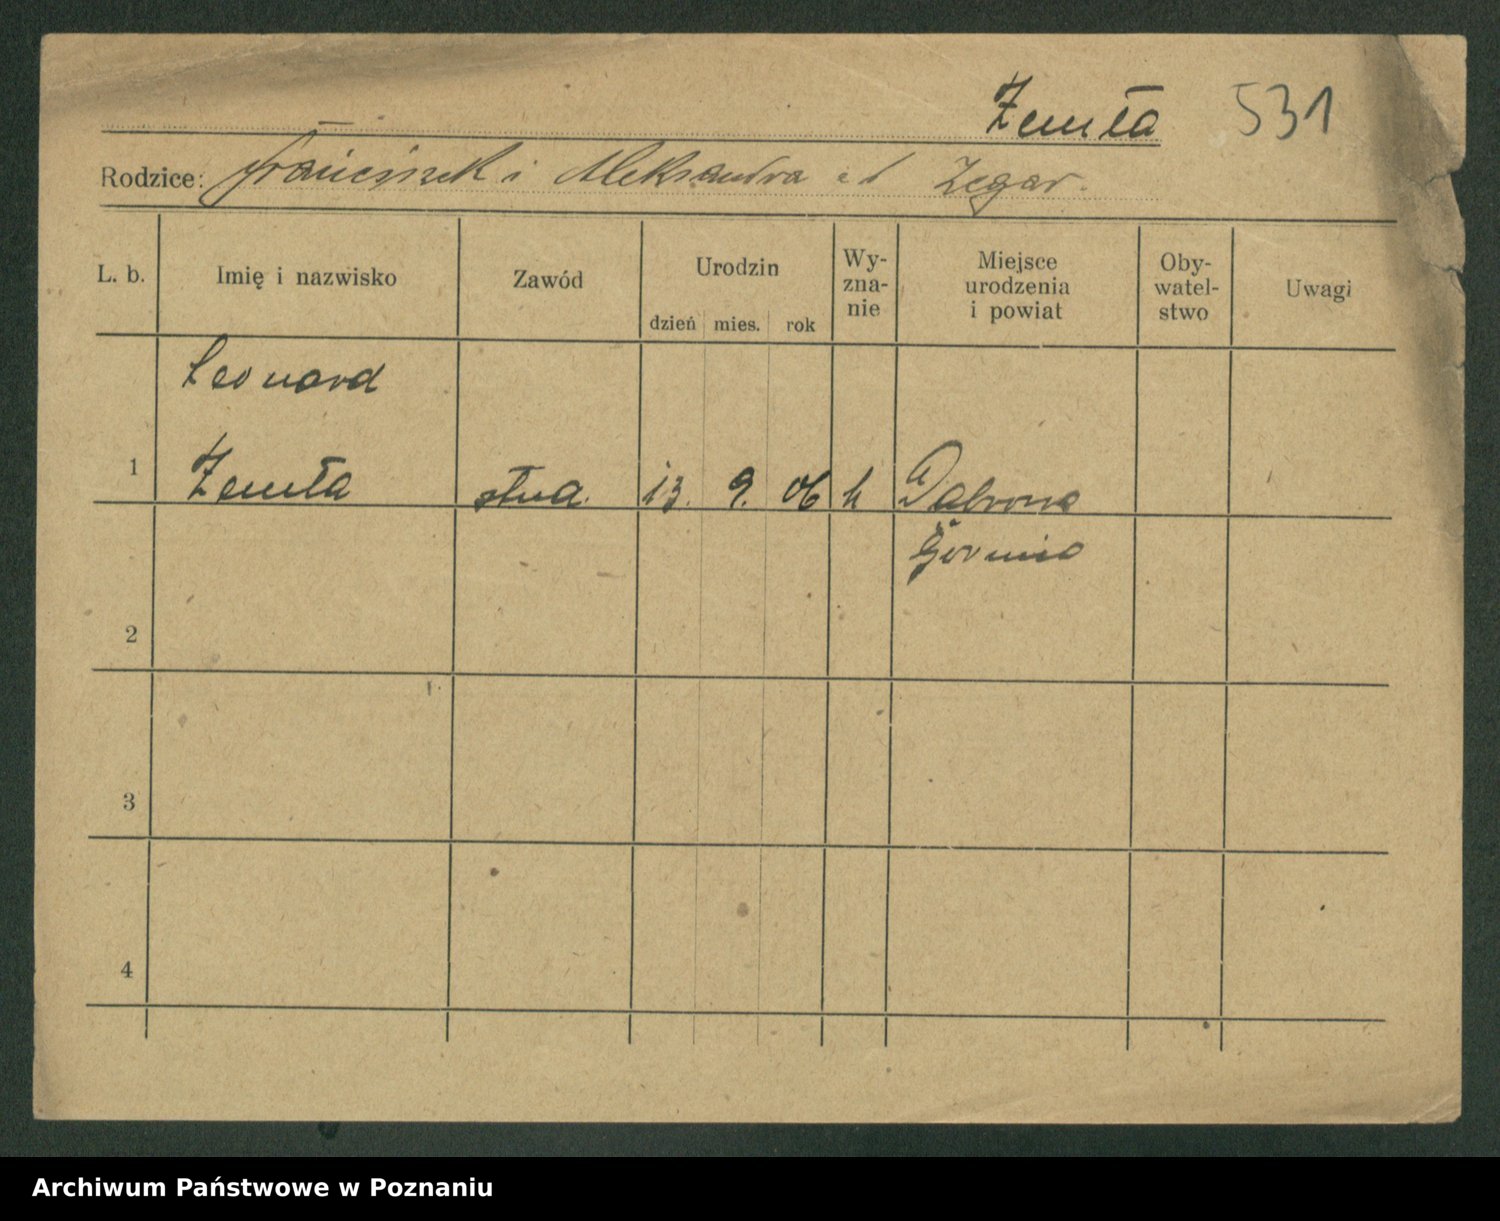 Zemła 531
Rodzice: Franciszek i Aleksandra z d Zegar.
L. b. Imię i nazwisko Zawód Urodzin dzień mies. rok Wy-zna-nie Miejsce urodzenia i powiat Oby-watel-stwo Uwagi
Leonard
1 Zemła 13. 9. 06 Dabrowa
Górnic
2
3
4
Archiwum Państwowe w Poznaniu